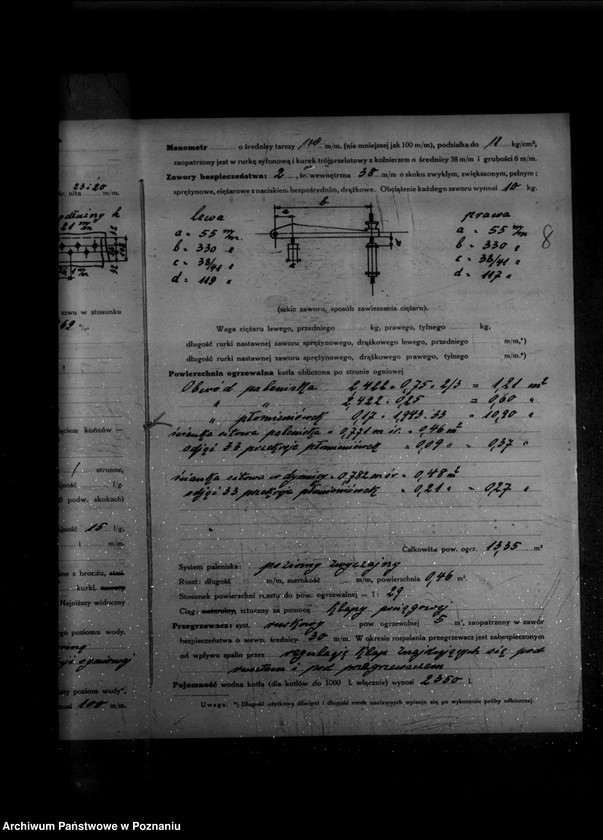 23 i 20
śr. nita m/m.
21 m/m
szwu w stosunku
69
ięciem końców —
stronne,
l/g.
(0 podw. skokach)
15 l/g,
i m/m.
z bronzu,
kurki
Najniższy widoczny
go poziomu wody,
ogniowej
poziom wody",
100 m/m.
Manometr o średnicy tarczy 100 m/m. (nie mniejszej jak 100 m/m), podziałka do 18 kg/cm²,
zaopatrzony jest w rurkę syfonową i kurek trójprzelotowy z kołnierzem o średnicy 38 m/m i grubości 6 m/m.
Zawory bezpieczeństwa: 2, śr. wewnętrzna 38 m/m o skoku zwykłym, zwiększonym, pełnym;
sprężynowe, ciężarowe z naciskiem bezpośrednim, drążkowe. Obciążenie każdego zaworu wynosi 10 kg.
lewa
a = 55 m/m.
b = 330 "
c = 38/41 "
d = 119 "
b
a
c
d
prawa
a = 55 m/m
b = 330 "
c = 38/41 "
d = 117 "
8
(szkic zaworu, sposób zawieszenia ciężaru).
Waga ciężaru lewego, przedniego kg, prawego, tylnego kg,
długość rurki nastawnej zaworu sprężynowego, drążkowego lewego, przedniego m/m,*)
długość rurki nastawnej zaworu sprężynowego, drążkowego prawego, tylnego m/m.*)
Powierzchnia ogrzewalna kotła obliczona po stronie ogniowej
Obwód paleniska 2,422 · 0,75 · 2/3 = 1,21 m²
" " 2,422 · 0,25 = 0,60 "
" płomieniówek 0,17 · 1,943 · 33 = 10,90 "
ścianka sitowa paleniska = 0,771 m śr. = 0,46 m²
odjąć 33 przekroje płomieniówek = 0,09 " = 0,37 "
ścianka sitowa w dymnicy = 0,782 m śr = 0,48 m²
odjąć 33 przekroje płomieniówek = 0,21 " = 0,27 "
Całkowita pow. ogrz. 13,35 m²
System paleniska: poziomy zwyczajny
Ruszt: długość m/m, szerokość m/m, powierzchnia 0,46 m².
Stosunek powierzchni rusztu do pow. ogrzewalnej = 1 : 29
Ciąg: sztuczny za pomocą klapy
Przegrzewacz: syst. rurkowy pow. ogrzewalnej 5 m², zaopatrzony w zawór
bezpieczeństwa o wewn. średnicy 30 m/m. W okresie rozpalenia przegrzewacz jest zabezpieczony
od wpływu spalin przez regulację klap znajdujących się pod
rusztem i pod przegrzewaczem
Pojemność wodna kotła (dla kotłów do 1000 l. włącznie) wynosi 2350 l.
Uwaga: *) Długość użytkową dźwigni i długość rurek nastawnych wpisuje się po wykonaniu próby odbiorczej.
Archiwum Państwowe w Poznaniu